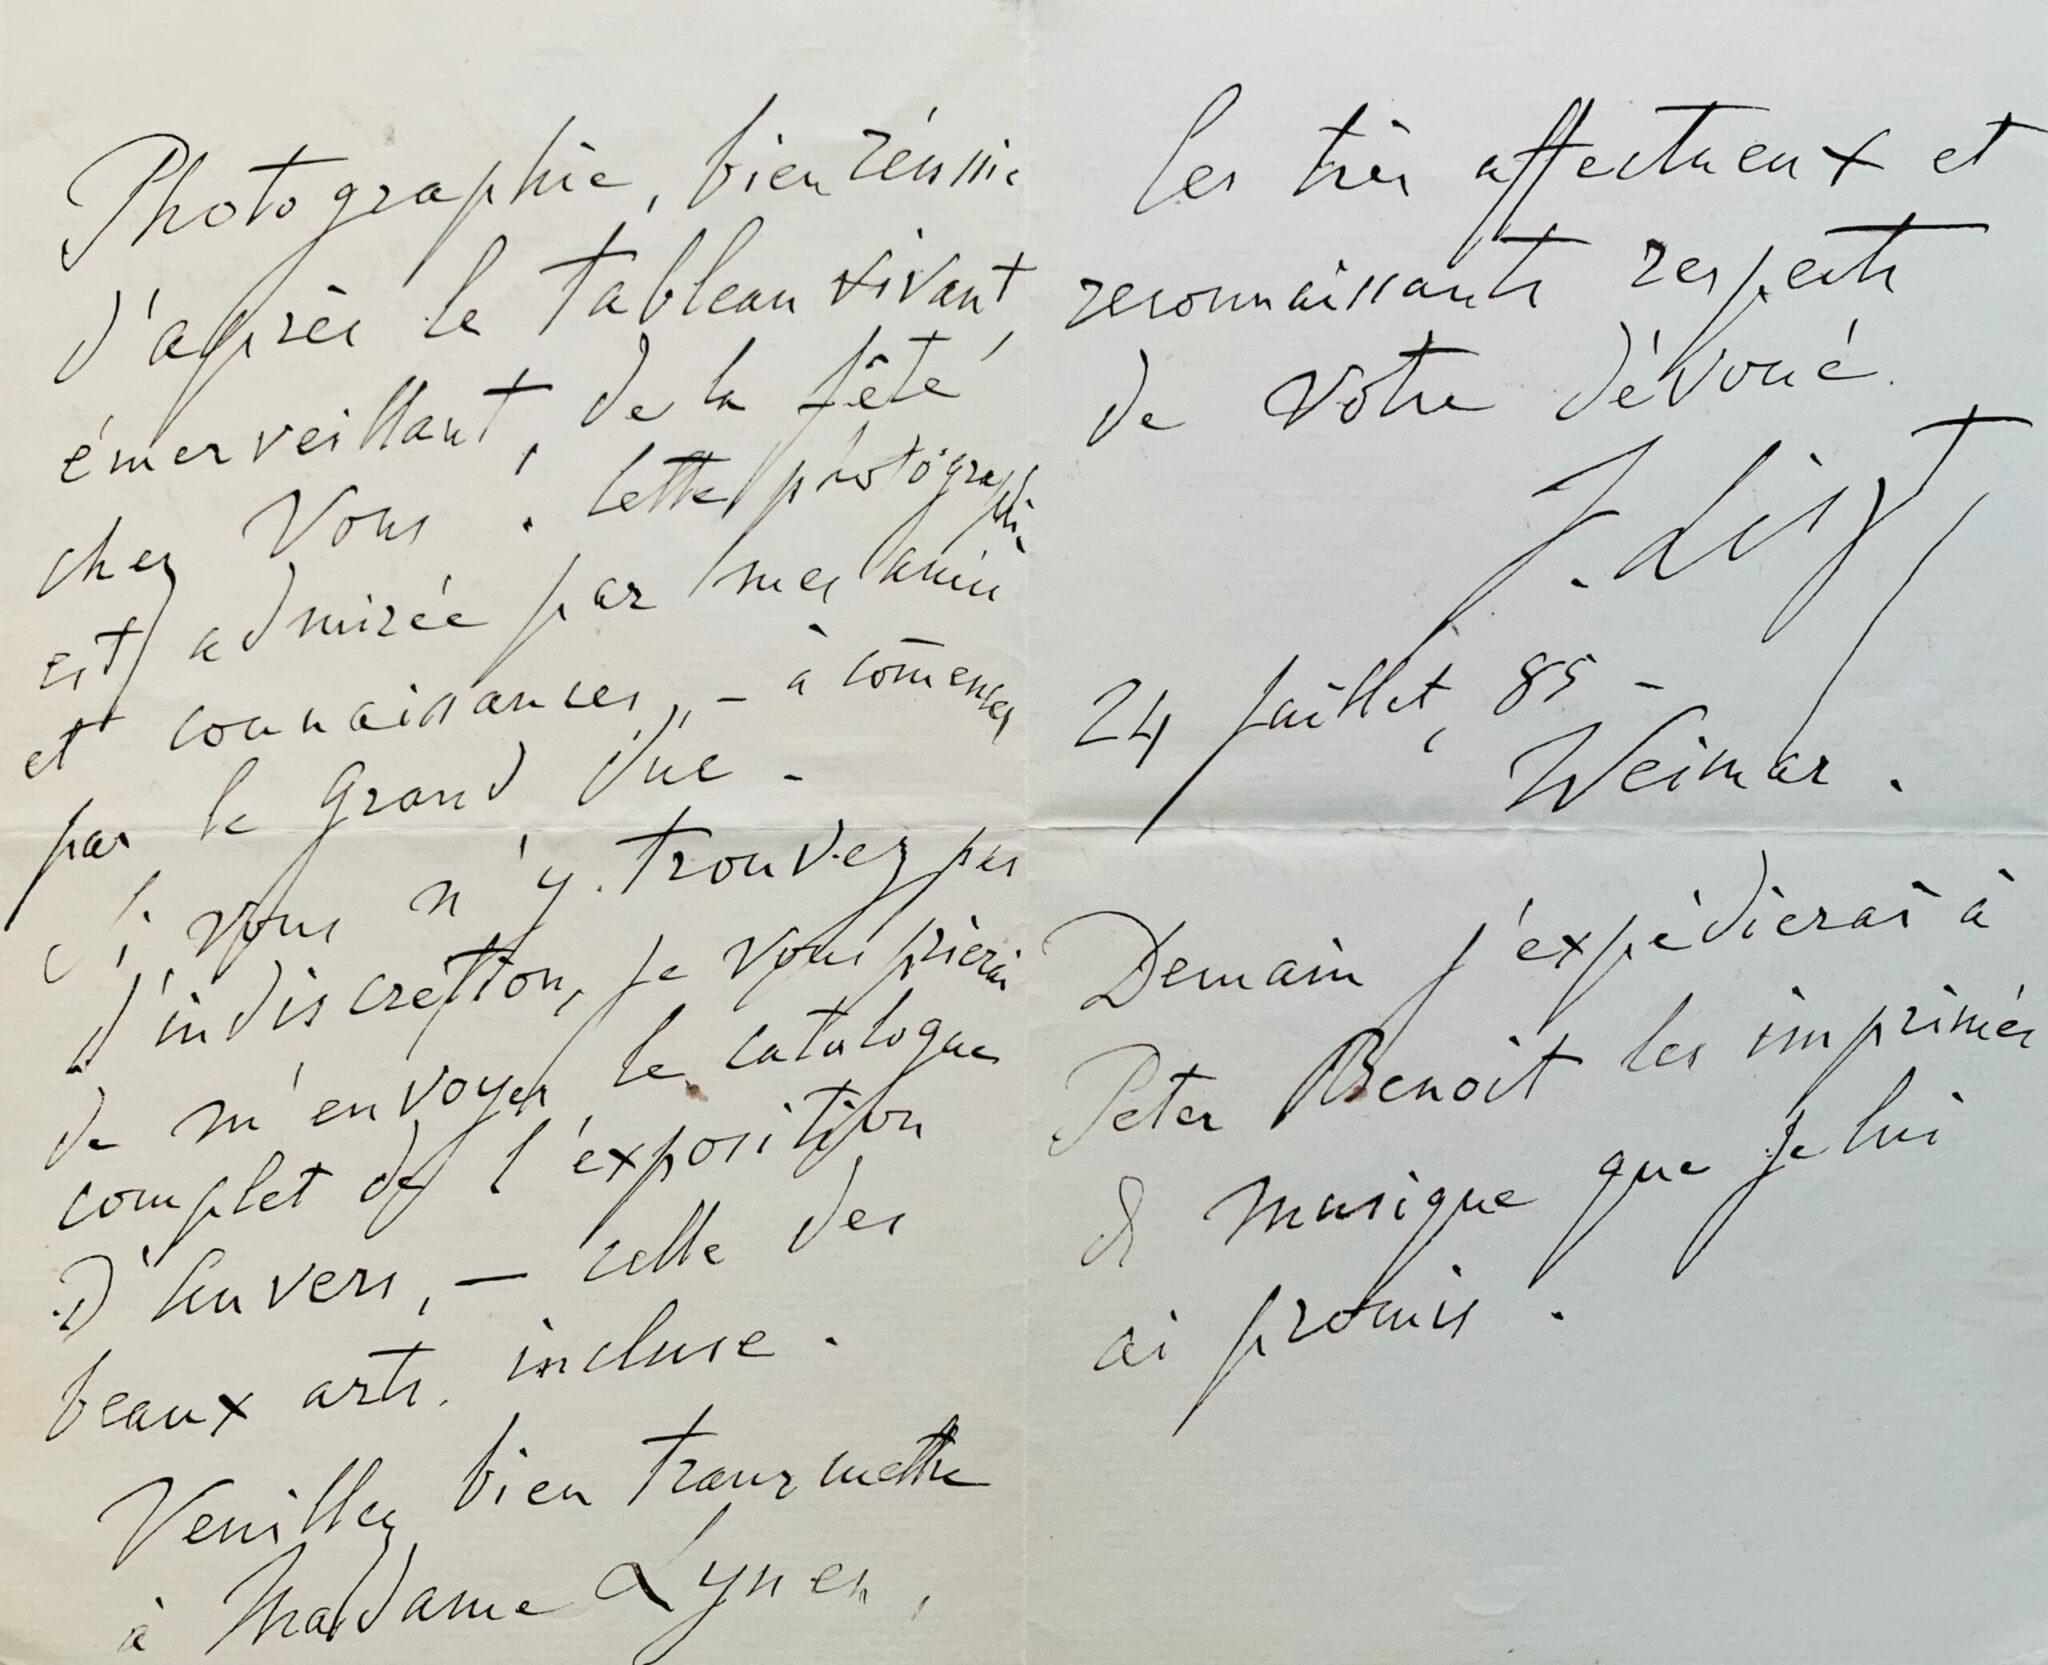 Photographie, bien réussie
d'après le tableau vivant,
émerveillant, de la fête
chez Vous. Cette photographie
est admirée par mes amis
et connaissances, – à com̄encer
par le Grand Duc –
Si vous n'y trouvez pas
d'indiscrétion, je vous prierai
de m'envoyer le catalogue
complet de l'exposition
d'Anvers, – celle des
beaux arts incluse.
Veuillez bien transmettre
à Madame Lynen,
les très affectueux et
reconnaissants respects
de votre dévoué
F. Liszt
24 Juillet, 85 –
Weimar.
Demain j'expédierai à
Peter Benoit les imprimés
de musique que je lui
ai promis.